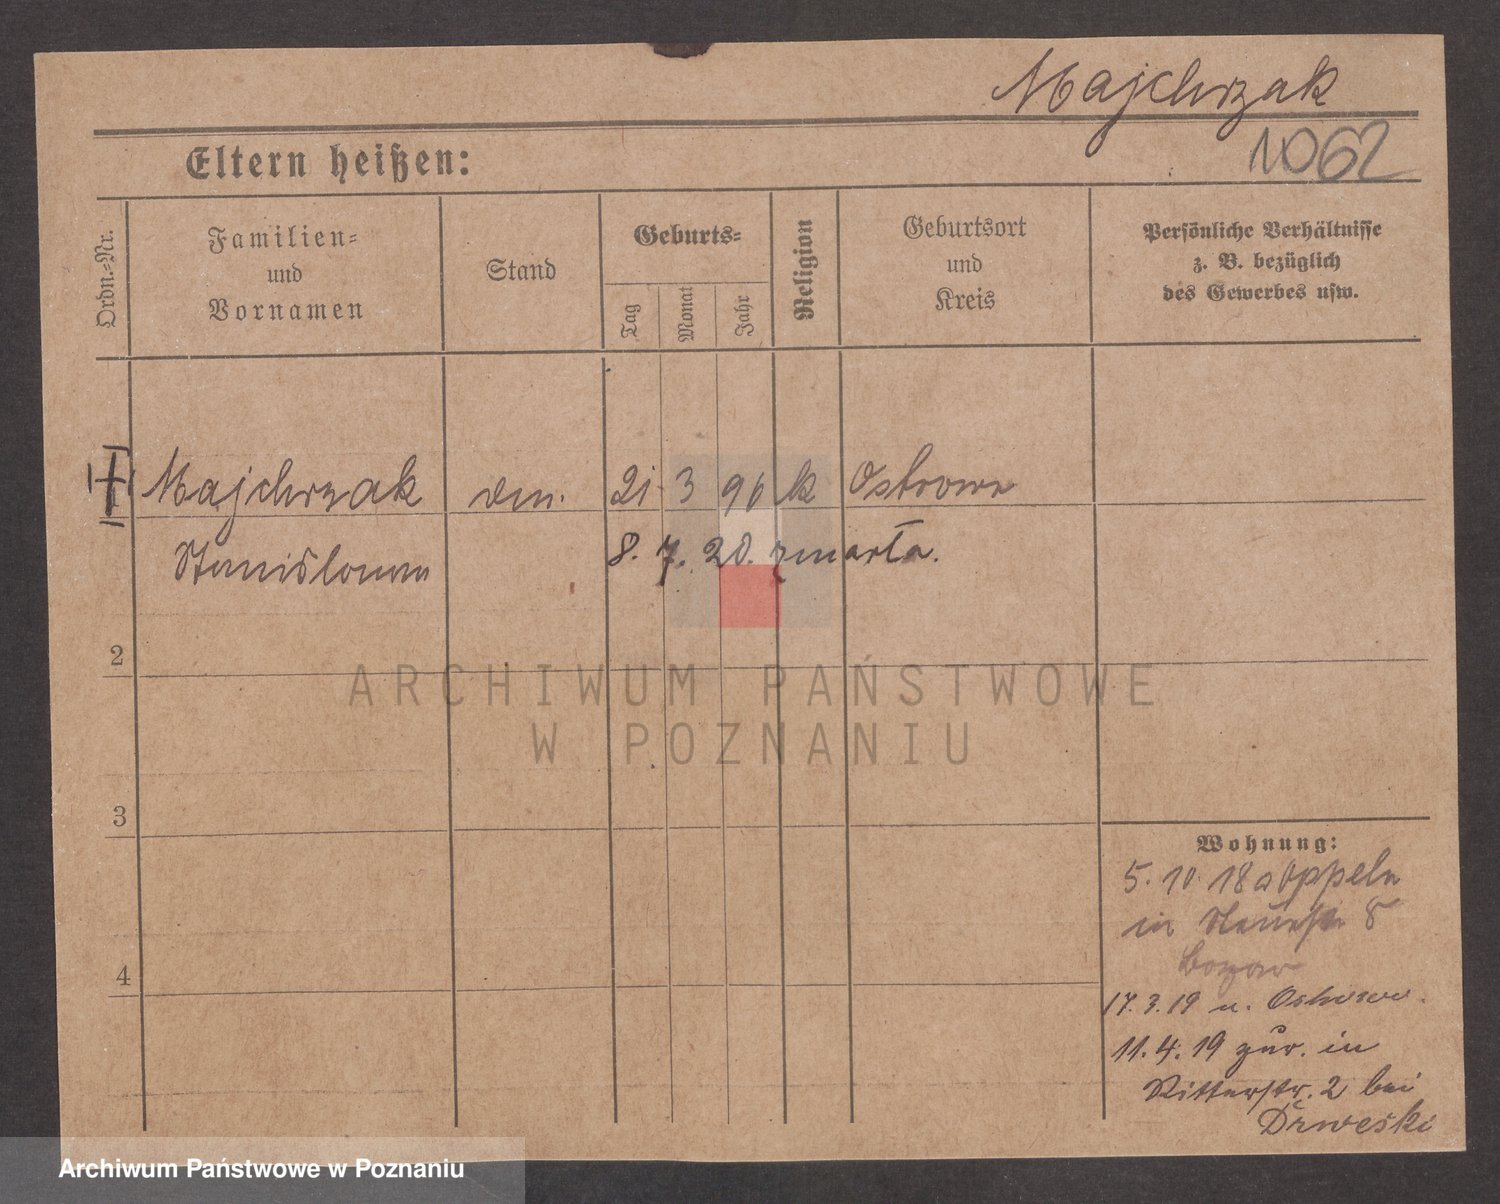 Majchrzak
1062
Eltern heißen:
Ordn.-Nr.
Familien-
und
Vornamen
Stand
Geburts-
Tag
Monat
Jahr
Religion
Geburtsort
und
Kreis
Persönliche Verhältnisse
z. B. bezüglich
des Gewerbes usw.
Majchrzak 21 3 96 k Ostrowo
Stanislawa 8. 7. 20. zmarła.
2
3
4
Wohnung:
5. 10. 18 a Oppeln
in 8
17. 3. 19 n. Ostrowo.
11. 4. 19 zur. in
Ritterstr. 2 bei
Drweski
ARCHIWUM PAŃSTWOWE
W POZNANIU
Archiwum Państwowe w Poznaniu